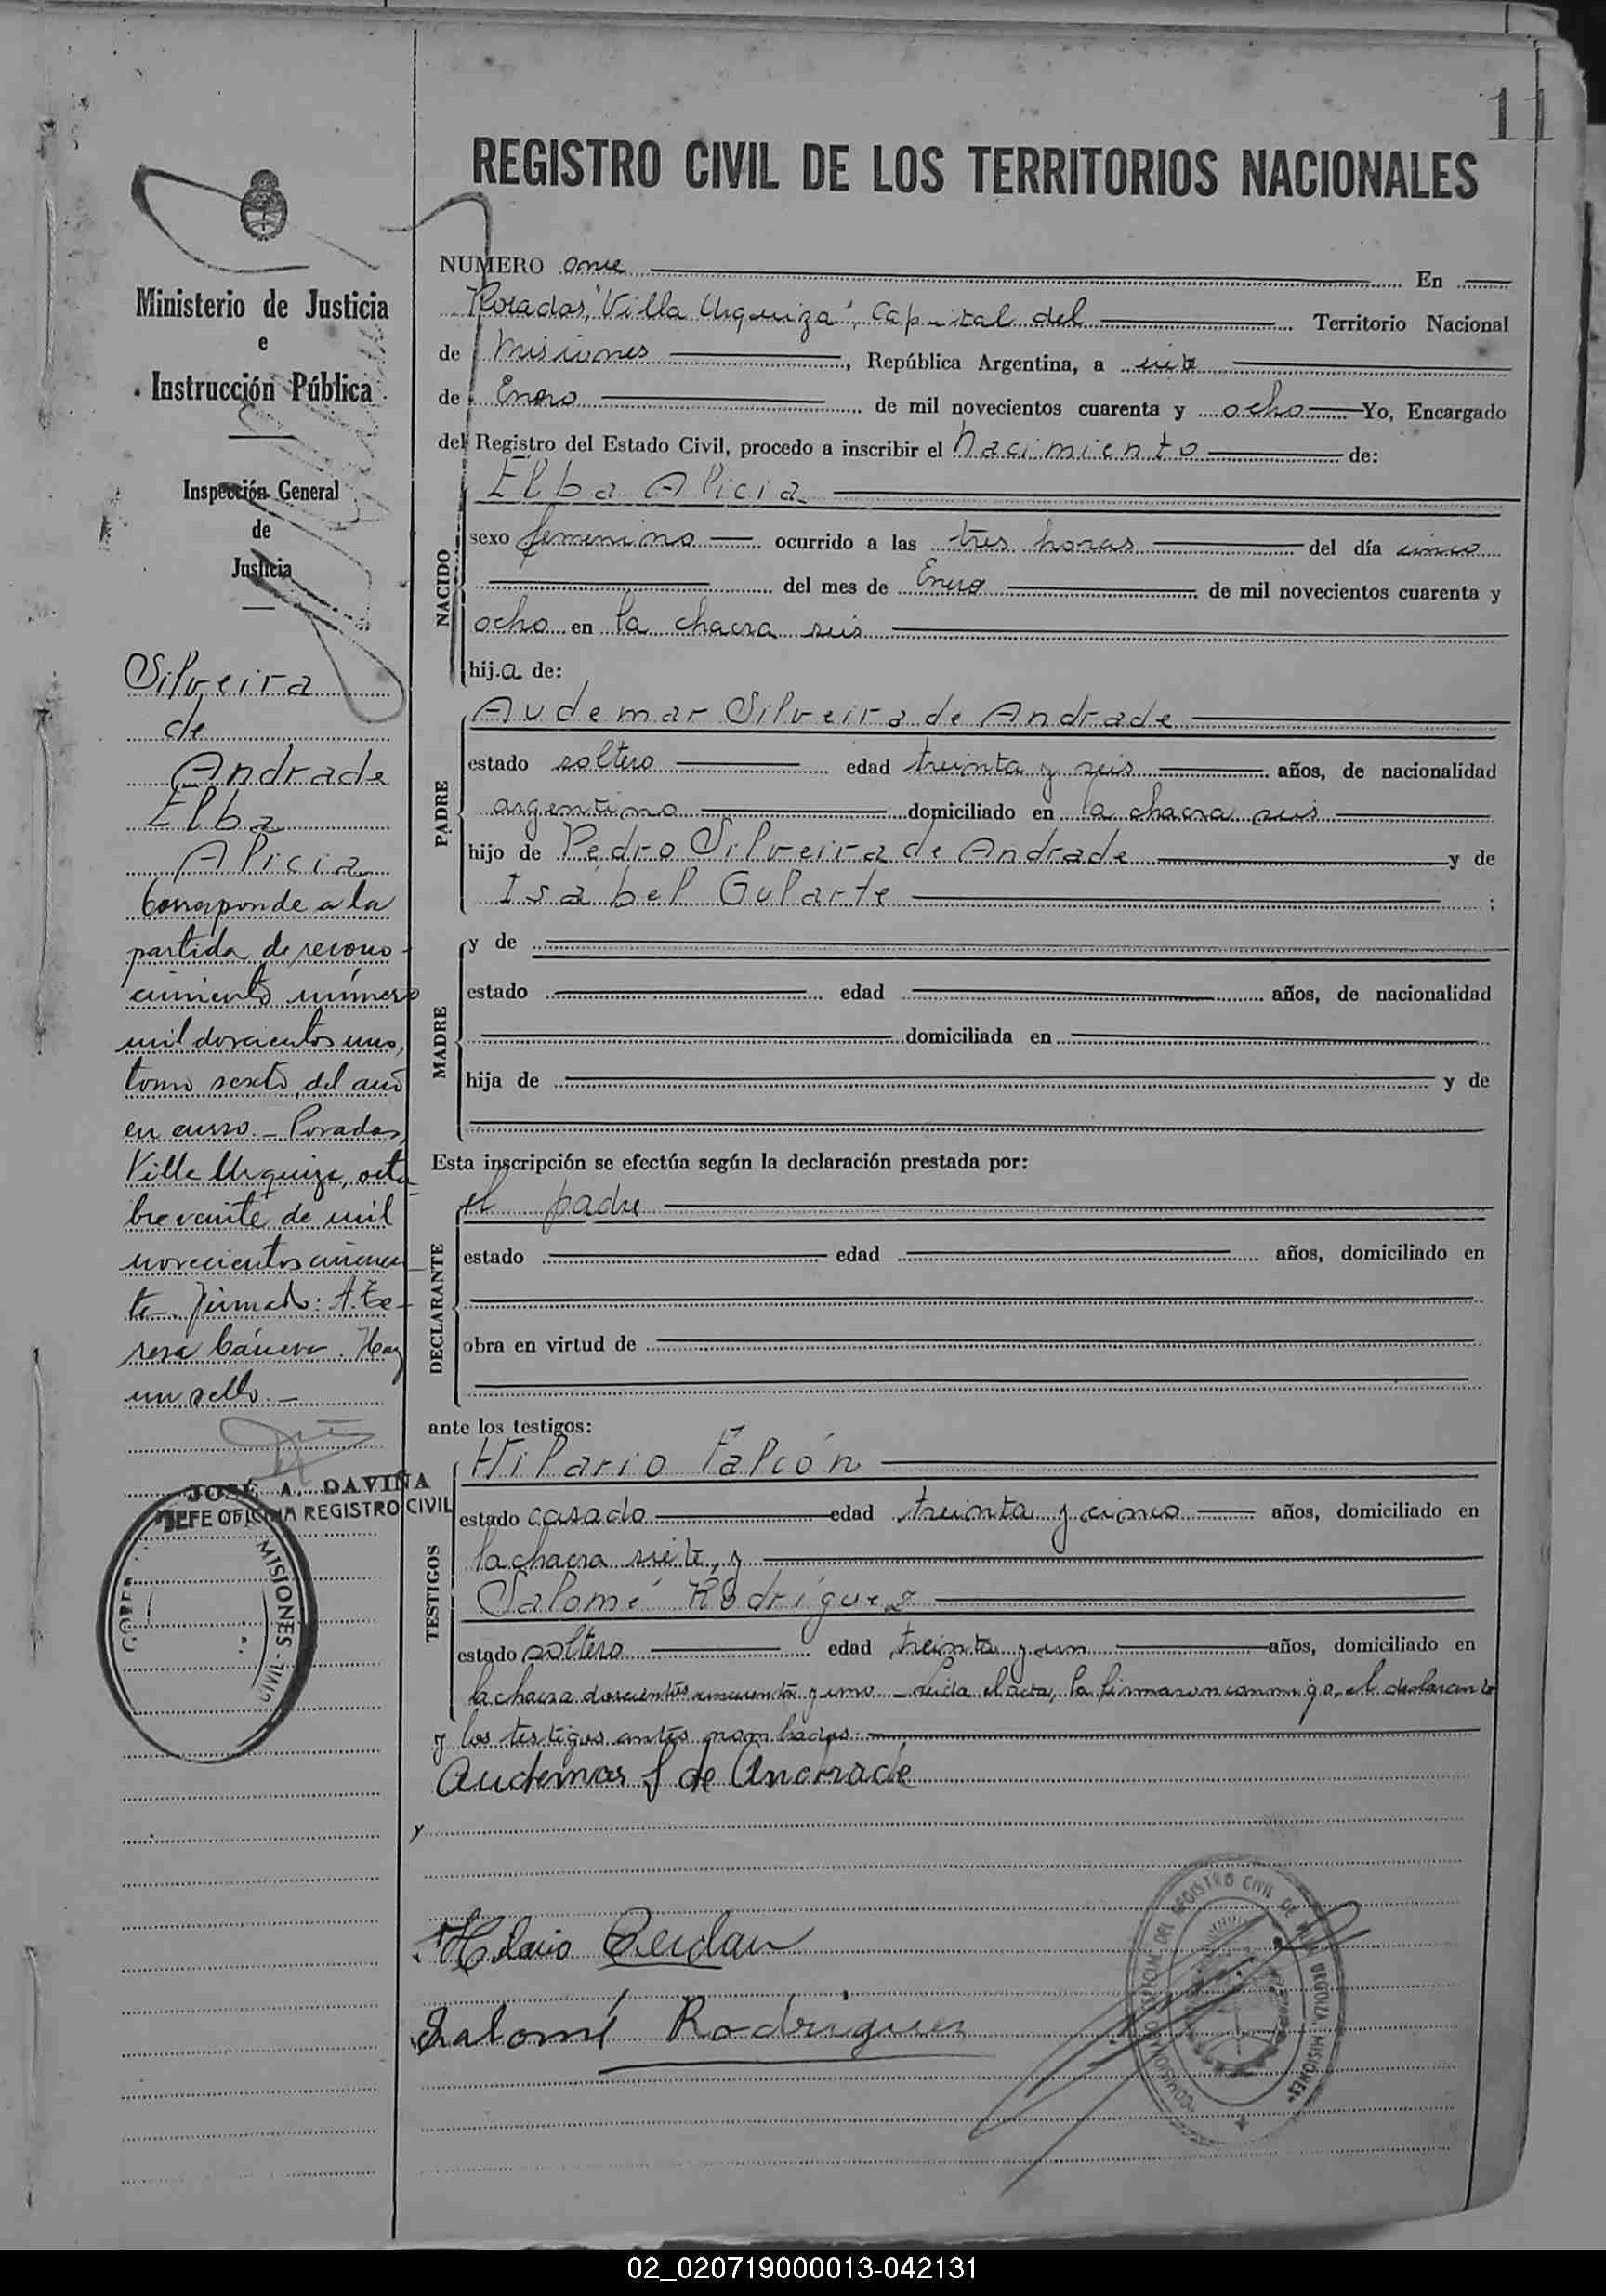 11
REGISTRO CIVIL DE LOS TERRITORIOS NACIONALES
Ministerio de Justicia
e
Instrucción Pública
Inspección General
de
Justicia
Silveira
de
Andrade
Elba
Alicia
Corresponde a la
partida de recono-
cimiento número
mil doscientos uno,
tomo sexto, del año
en curso. - Posadas,
Villa Urquiza, octu-
bre veinte de mil
novecientos cincuen-
ta. Firmado: A. Te-
resa . Hay
un sello. -
JOSÉ A. DAVIÑA
JEFE OFICINA REGISTRO CIVIL
MISIONES - CIVIL
NUMERO once En
Posadas, "Villa Urquiza", Capital del Territorio Nacional
de Misiones, República Argentina, a siete
de Enero de mil novecientos cuarenta y ocho Yo, Encargado
del Registro del Estado Civil, procedo a inscribir el nacimiento de:
NACIDO
Elba Alicia
sexo femenino ocurrido a las tres horas del día cinco
del mes de Enero de mil novecientos cuarenta y
ocho en la chacra seis
hija de:
PADRE
Audemar Silveira de Andrade
estado soltero edad treinta y seis años, de nacionalidad
argentino domiciliado en la chacra seis
hijo de Pedro Silveira de Andrade y de
Isabel Gularte ;
MADRE
y de
estado edad años, de nacionalidad
domiciliada en
hija de y de
Esta inscripción se efectúa según la declaración prestada por:
DECLARANTE
el padre
estado edad años, domiciliado en
obra en virtud de
ante los testigos:
TESTIGOS
Hilario Falcón
estado casado edad treinta y cinco años, domiciliado en
la chacra siete, y
Salomé Rodríguez
estado soltero edad treinta y un años, domiciliado en
la chacra doscientos cincuenta y uno - Leida el acta, la firmaron conmigo, el declarante
y los testigos antes nombrados.
Audemar S de Andrade
y
Hilario
Salomé Rodriguez
COMISIONADO ESPECIAL DEL REGISTRO CIVIL DE VILLA URQUIZA, MISIONES
02_020719000013-042131